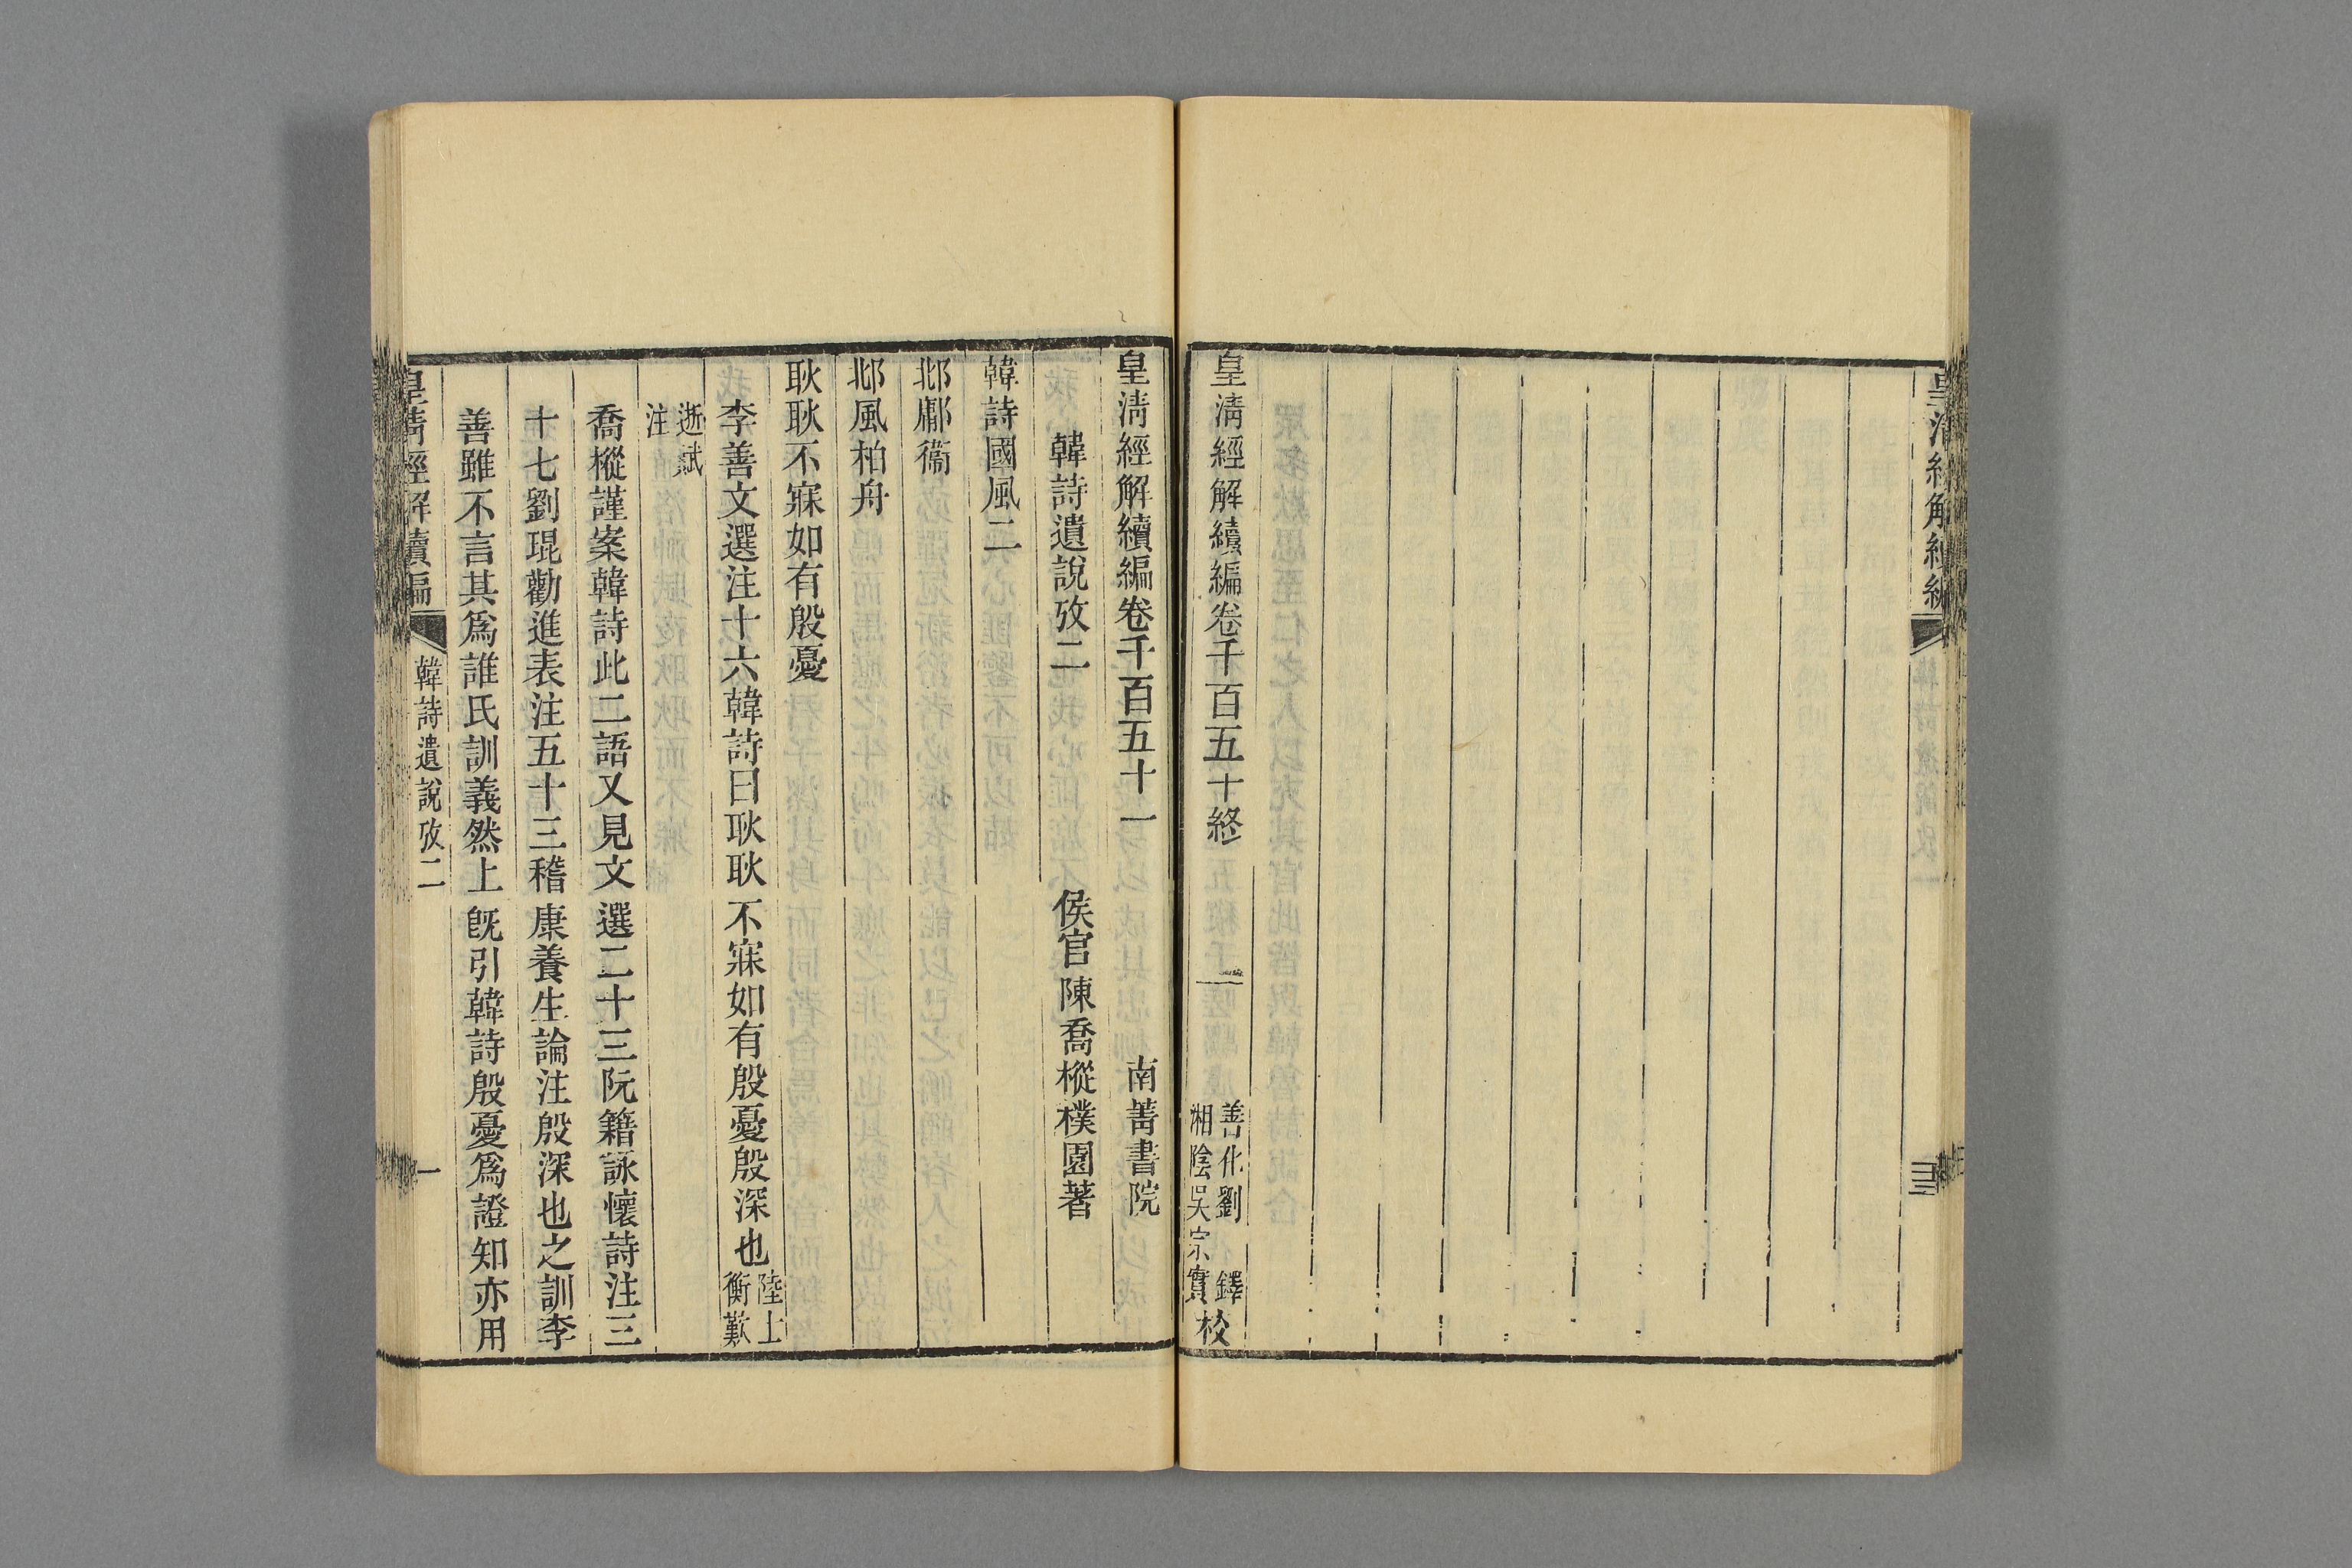 皇清經解續編卷千百五十終
善化劉鐸
湘陰吳宗實校
皇清經解續編卷千百五十一
南菁書院
韓詩遺說攷二
侯官陳喬樅樸園著
韓詩國風二
邶鄘衞
邶風柏舟
耿耿不寐如有殷憂
李善文選注十六韓詩曰耿耿不寐如有殷憂殷深也陸士衡歎
逝賦注
喬樅謹案韓詩此二語又見文選二十三阮籍詠懷詩注三
十七劉琨勸進表注五十三稽康養生論注殷深也之訓李
善雖不言其爲誰氏訓義然上旣引韓詩殷憂爲證知亦用
皇清經解續編
韓詩遺說攷二
一